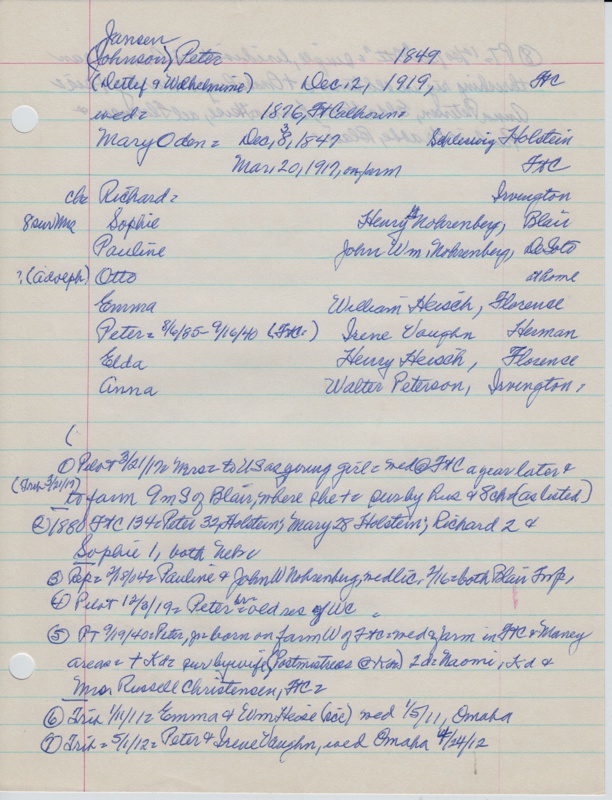 Jansen
(Johnson) Peter 1849
(Detlef & Wilhelmine) Dec, 12, 1919, FtC
wed= 1876, Ft Calhoun=
Mary Oden= Dec, 8, 1847 Schleswig Holstein
Mar, 20, 1917, on farm FtC
ch= Richard= Irvington
8 sur Mrs Sophie Henry Nohrenberg, Blair
Pauline John Wm. Nohrenberg, DeSoto
?, (Adolph) Otto at home
Emma William Heisch, Florence
Peter= 8/6/85-9/16/40 (FtC=) Irene Vaughn Herman
Elda Henry Heisch, Florence
Anna Walter Peterson, Irvington,
(
① Pilot 3/21/17= Mrs= to US as young girl= wed @ FtC a year later &
(Trib 3/22/17) to farm 9 m S of Blair, where she += sur by Hus & 8 ch= (as listed)
② 1880 FtC 134= Peter 32, Holstein; Mary 28 Holstein; Richard 2 &
Sophie 1, both Neb=
③ Rep= 2/18/04= Pauline & John W Nohrenberg, wed lic, 2/16= both Blair Twp,
④ Pilot 12/2/19= Peter brn= old res of WC
⑤ PT 9/19/40= Peter, Jr= born on farm W of FtC= wed & farm in FtC & Maney
areas= + Kd= sur by wife (Postmistress @ Kd) 2 d= Naomi, Kd &
Mrs. Russell Christensen, FtC=
⑥ Trib 1/11/11= Emma & Wm Heise (sic) wed 1/5/11, Omaha
⑦ Trib= 5/1/12= Peter & Irene Vaughn, wed Omaha 4/24/12